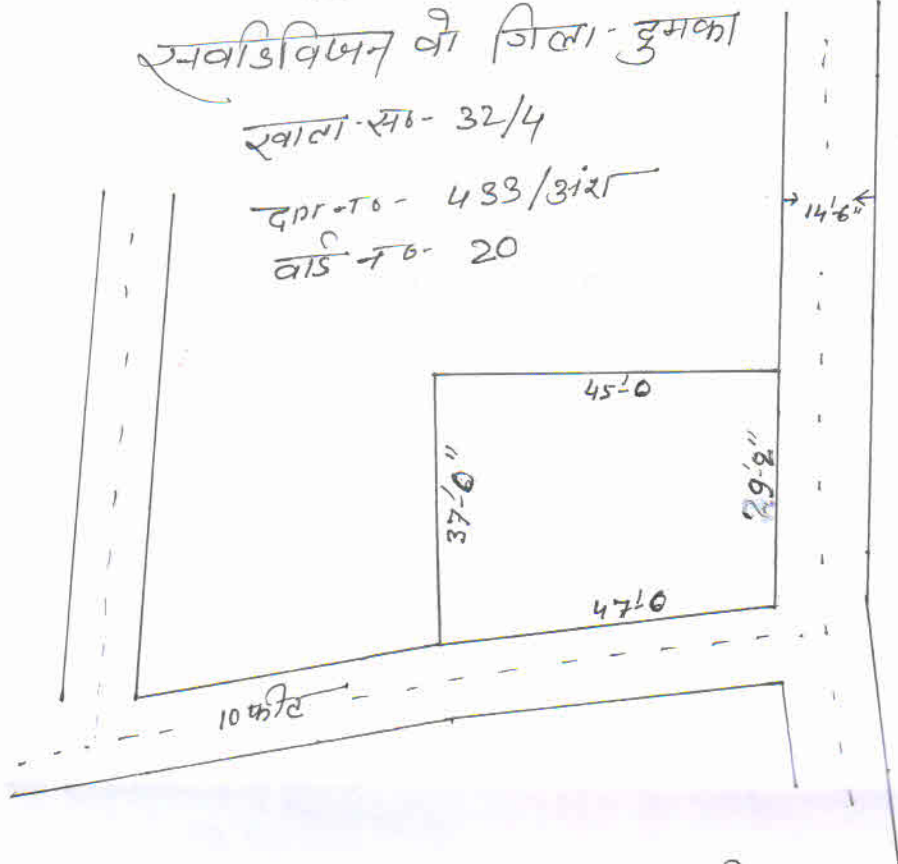 सवडिविजन वो जिला - दुमका
खाता - सं० - 32/4
दाग न० - 433/अंश
वार्ड न० - 20
14'6"
45'-0
37'-0"
29'-2"
47'-0
10 फीट